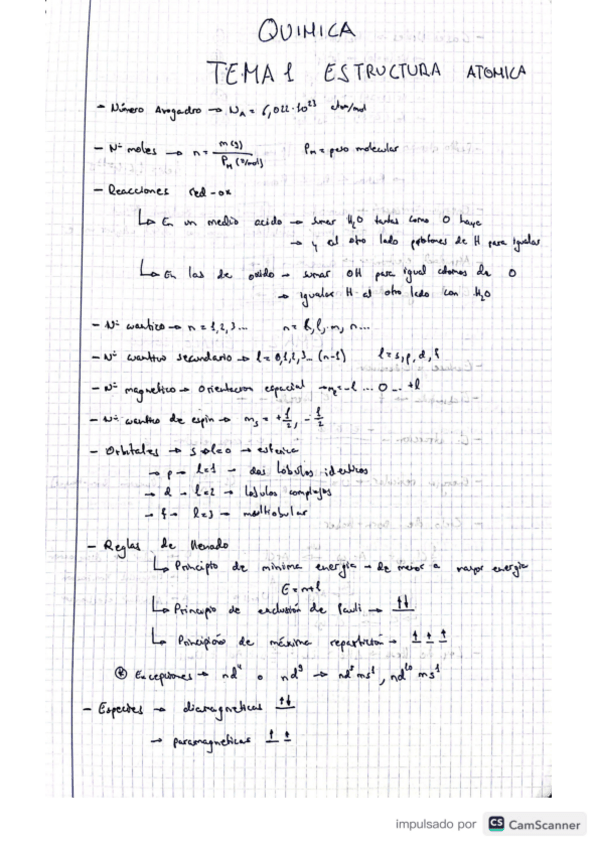 QUIMICA
TEMA 1 ESTRUCTURA ATOMICA
- Número Avogadro → N_A = 6,022·10²³ átom/mol
- Nº moles → n = m (g) / P_M (g/mol) P_M = peso molecular
- Reacciones red-ox
↳ En un medio acido → sumar H₂O tantas como O haya
→ y al otro lado protones de H para igualar
↳ En las de oxido → sumar OH para igual atomos de O
→ igualar H al otro lado con H₂O
- Nº cuantico → n = 1, 2, 3... n = k, l, m, n...
- Nº cuantico secundario → l = 0, 1, 2, 3... (n-1) l = s, p, d, f
- Nº magnetico → orientacion espacial → = -l ... 0 ... +l
- Nº cuantico de espin → m_s = +1/2, -1/2
- Orbitales → s → l=0 → esferica
→ p → l=1 → dos lobulos identicos
→ d → l=2 → lobulos complejos
→ f → l=3 → multilobular
- Reglas de llenado
↳ Principio de minima energia → de menor a mayor energia
E = n+l
↳ Principio de exclusión de Pauli → ↑↓
↳ Principio de máxima repartición → ↑ ↑ ↑
* Excepciones → nd⁴ o nd⁹ → nd⁵ ms¹, nd¹⁰ ms¹
- Especies → diamagneticas ↑↓
→ paramagneticas ↑ ↑
impulsado por CS CamScanner